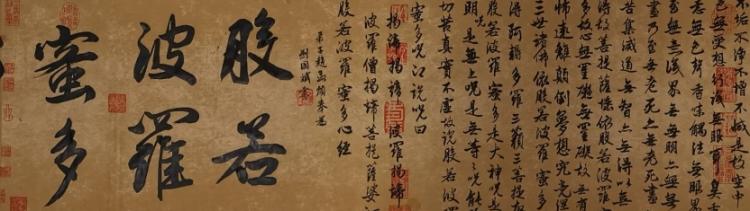 不垢不淨不增不減是故空中
色無受想行識無眼耳鼻舌
意無色聲香味觸法無眼界
無意識界無無明亦無無
盡乃至無老死亦無老死盡
無苦集滅道無智亦無得以無
所得故菩提薩埵依般若波羅
蜜多故心無罣礙無罣礙故無有
恐怖遠離顛倒夢想究竟涅
三世諸佛依般若波羅蜜多
得阿耨多羅三藐三菩提故
般若波羅蜜多是大神咒是
咒是無上咒是無等等咒能除
切苦真實不虛故説般若波羅
蜜多咒即説咒曰
揭諦揭諦 波羅揭諦
波羅僧揭諦 菩提薩婆訶
般若波羅蜜多心經
弟子趙孟頫奉為
般若
波羅
蜜多